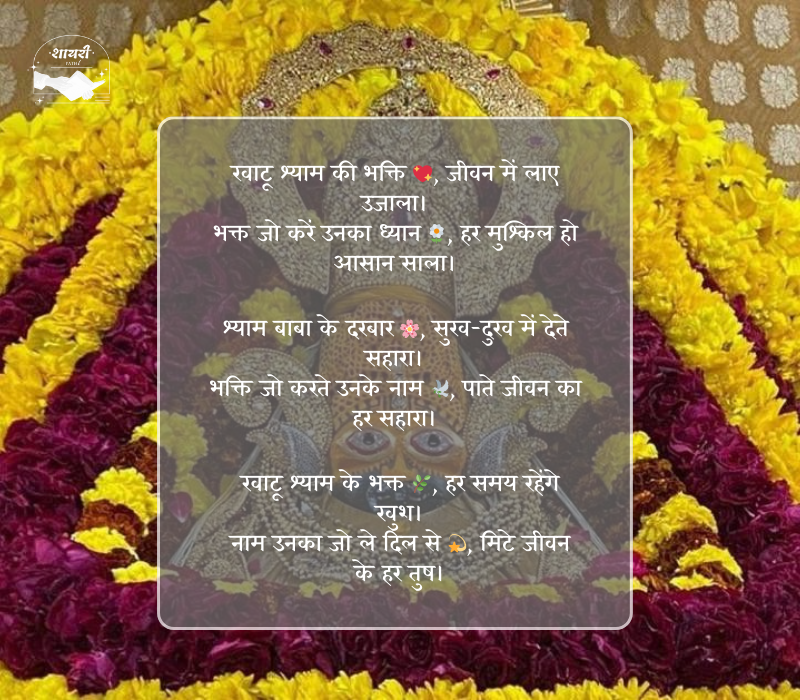 शायरी
खाटू श्याम की भक्ति 💖, जीवन में लाए
उजाला।
भक्त जो करें उनका ध्यान 🌼, हर मुश्किल हो
आसान साला।
श्याम बाबा के दरबार 🌸, सुख-दुख में देते
सहारा।
भक्ति जो करते उनके नाम 🕊️, पाते जीवन का
हर सहारा।
खाटू श्याम के भक्त 🌿, हर समय रहेंगे
खुश।
नाम उनका जो ले दिल से 💫, मिटे जीवन
के हर तुष।